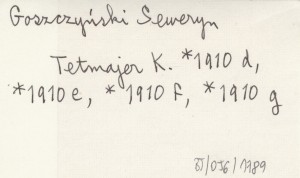 Goszczyński Seweryn
Tetmajer K. *1910 d,
*1910 e, *1910 f, *1910 g